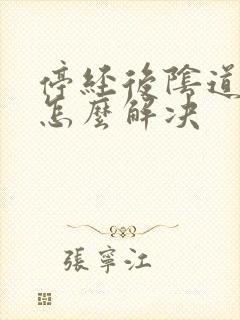 停經後陰道
怎麼解决
張寧江